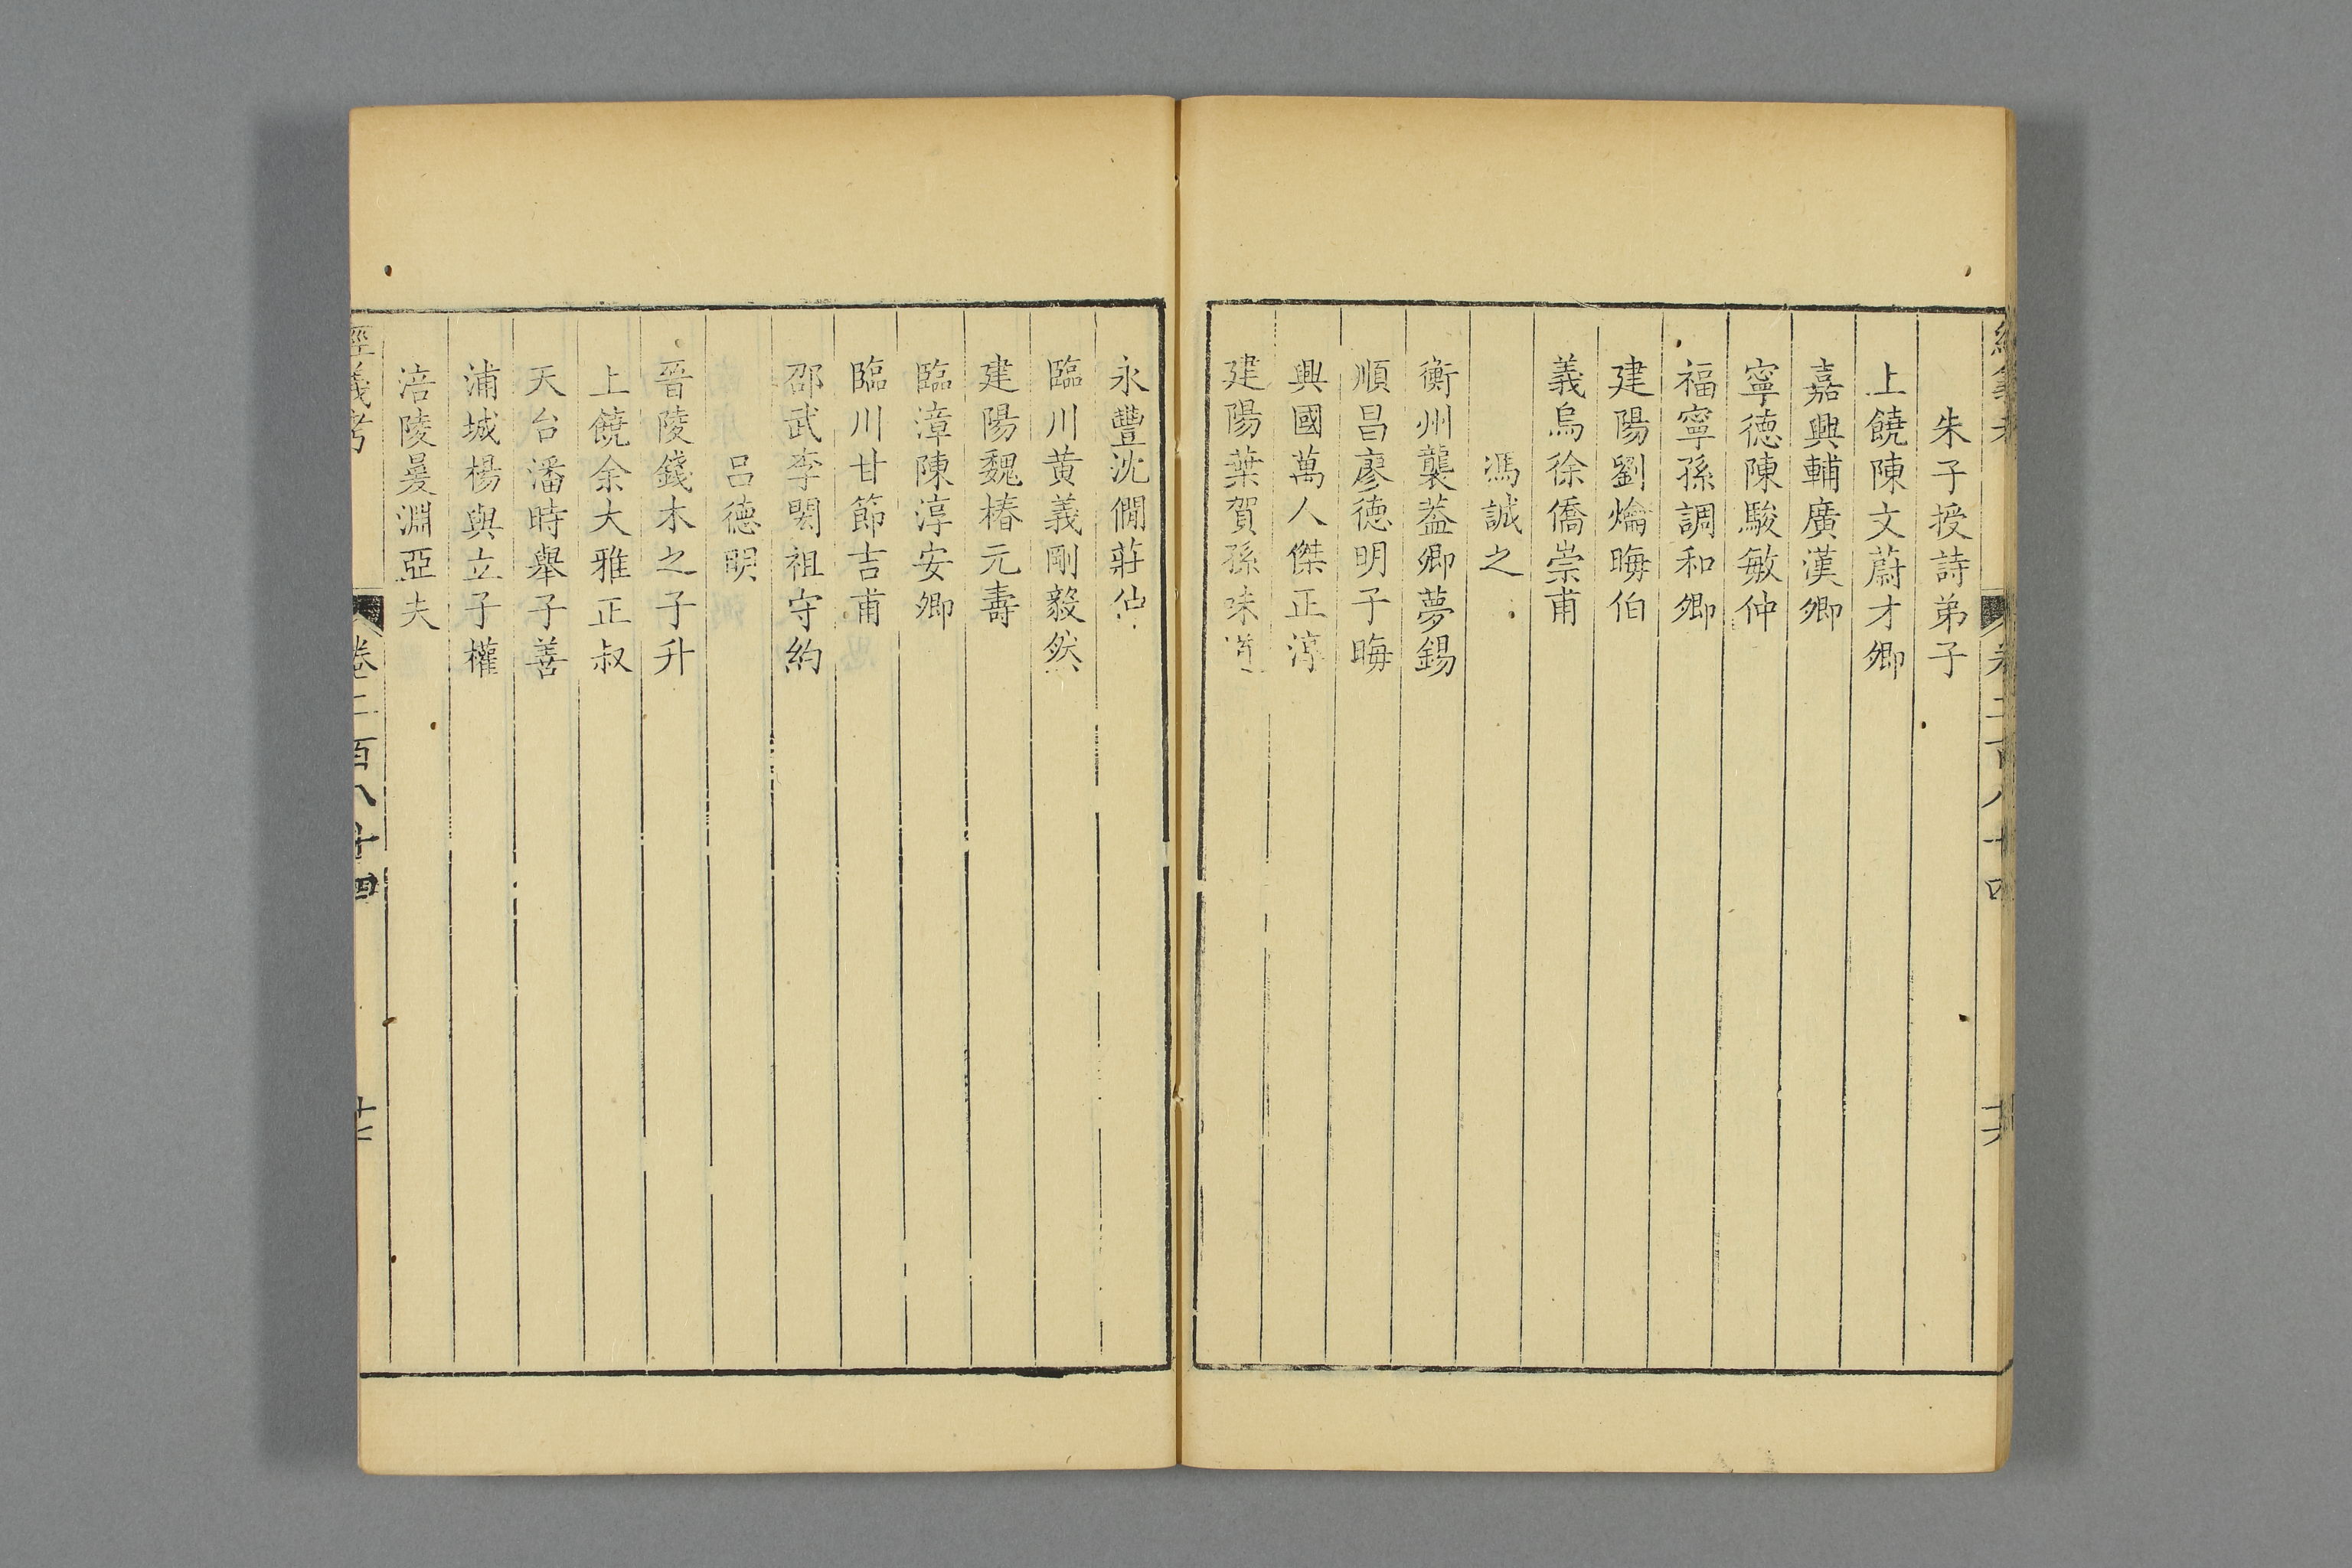 朱子授詩弟子
上饒陳文蔚才卿
嘉興輔廣漢卿
寧德陳駿敏仲
福寧孫調和卿
建陽劉爚晦伯
義烏徐僑崇甫
馮誠之
衡州襲蓋卿夢錫
順昌廖德明子晦
興國萬人傑正淳
建陽葉賀孫味道
永豐沈僩莊仲
臨川黃義剛毅然
建陽魏椿元壽
臨漳陳淳安卿
臨川甘節吉甫
邵武李閎祖守約
呂德明
晉陵錢木之子升
上饒余大雅正叔
天台潘時舉子善
浦城楊與立子權
涪陵㬊淵亞夫
經義考
卷二百八十四